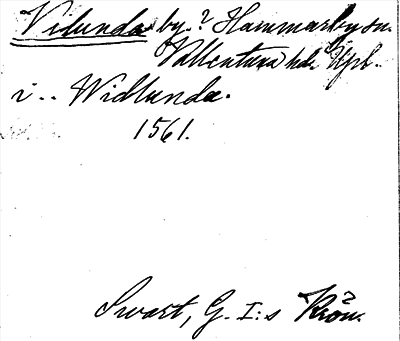 Vilunda by.? Hammarby sn.
Vallentuna hd. Upl.
i .. Widlunda.
1561.
Swart, G. I:s Krön.
2